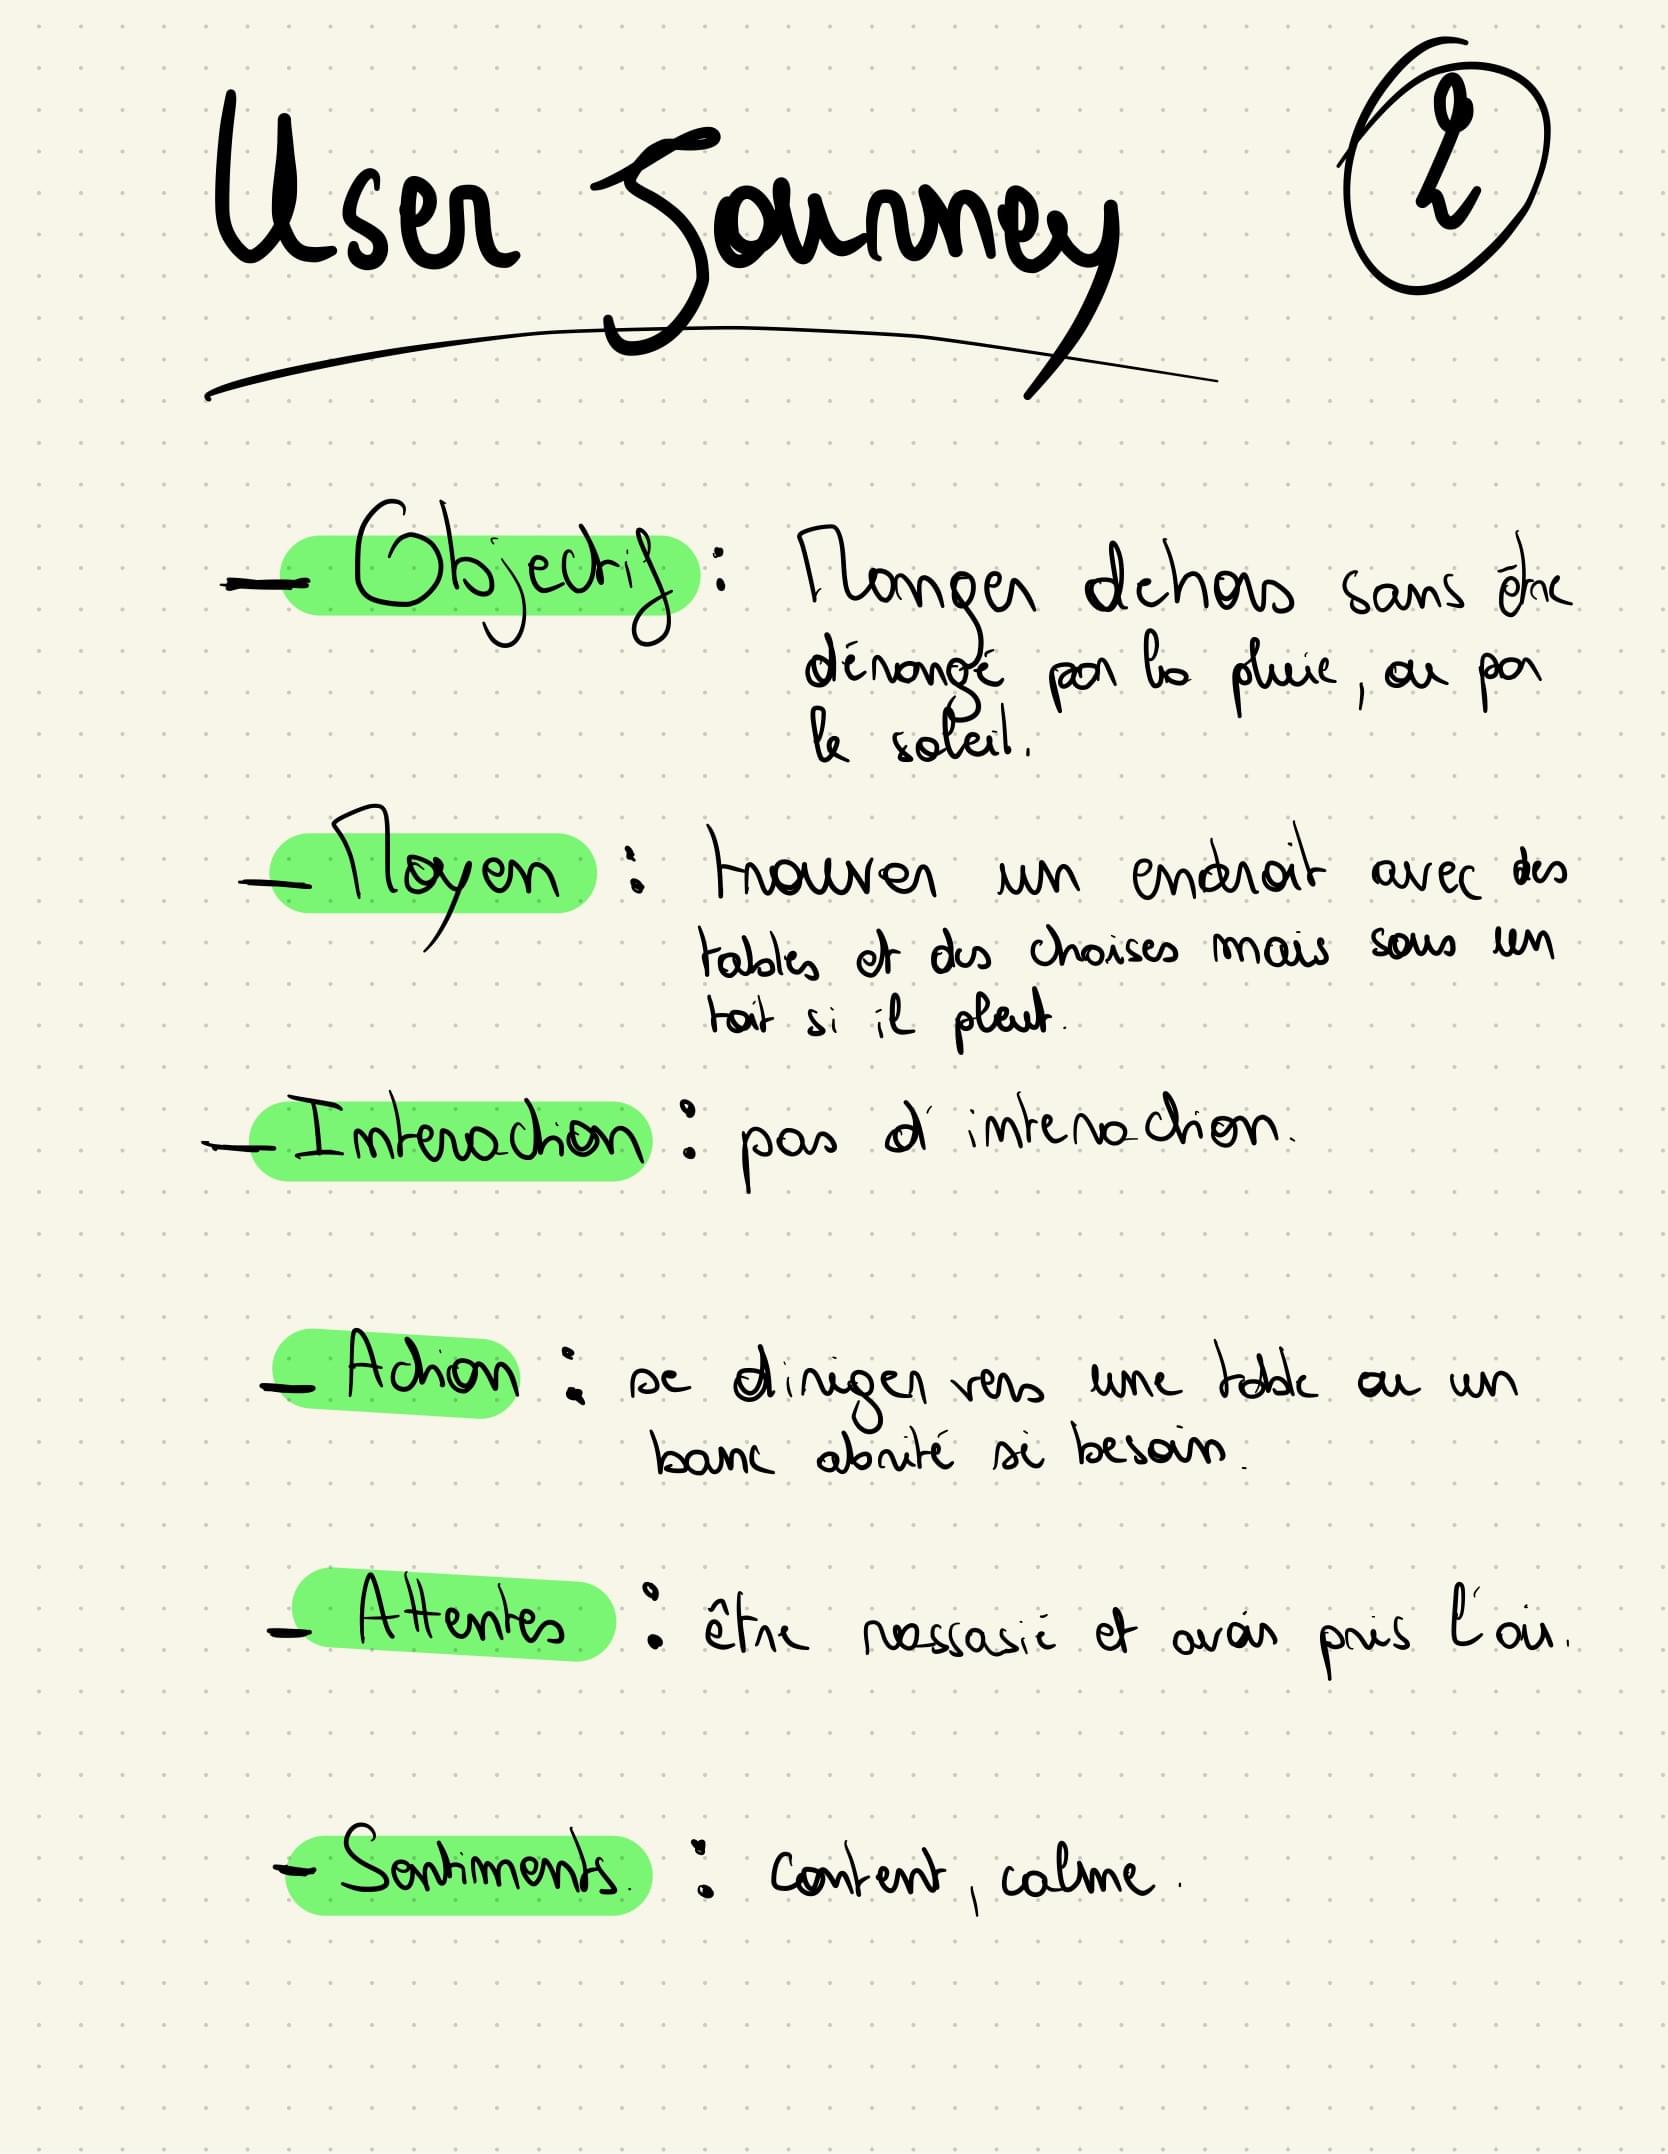 User Journey
2
- Objectif : Manger dehors sans être
dérangé par la pluie, ou par
le soleil.
- Moyen : trouver un endroit avec des
tables et des chaises mais sous un
toit si il pleut.
- Interaction : pas d'interaction.
- Action : se diriger vers une table ou un
banc abrité si besoin.
- Attentes : être rassasié et avoir pris l'air.
- Sentiments : content, calme.